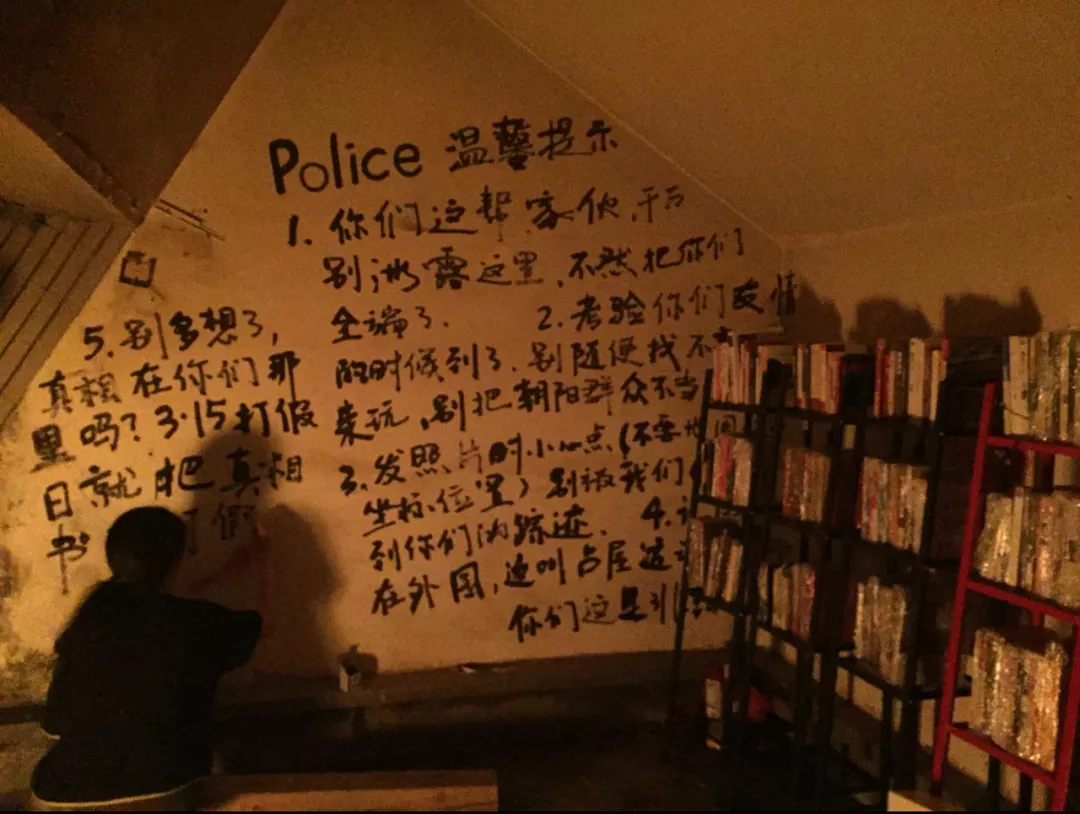 Police 温馨提示
1. 你们这帮家伙,千万
别泄露这里,不然把你们
全端了. 2. 考验你们友情
的时候到了,别随便找不
来玩,别把朝阳群众不当
3. 发照片时小心点(不要
坐标位置)别被我们
到你们的踪迹. 4.
在外国,这叫占屋运
你们这里
5. 别多想了,
真相在你们那
里吗?3·15打假
日就把真相
书 假